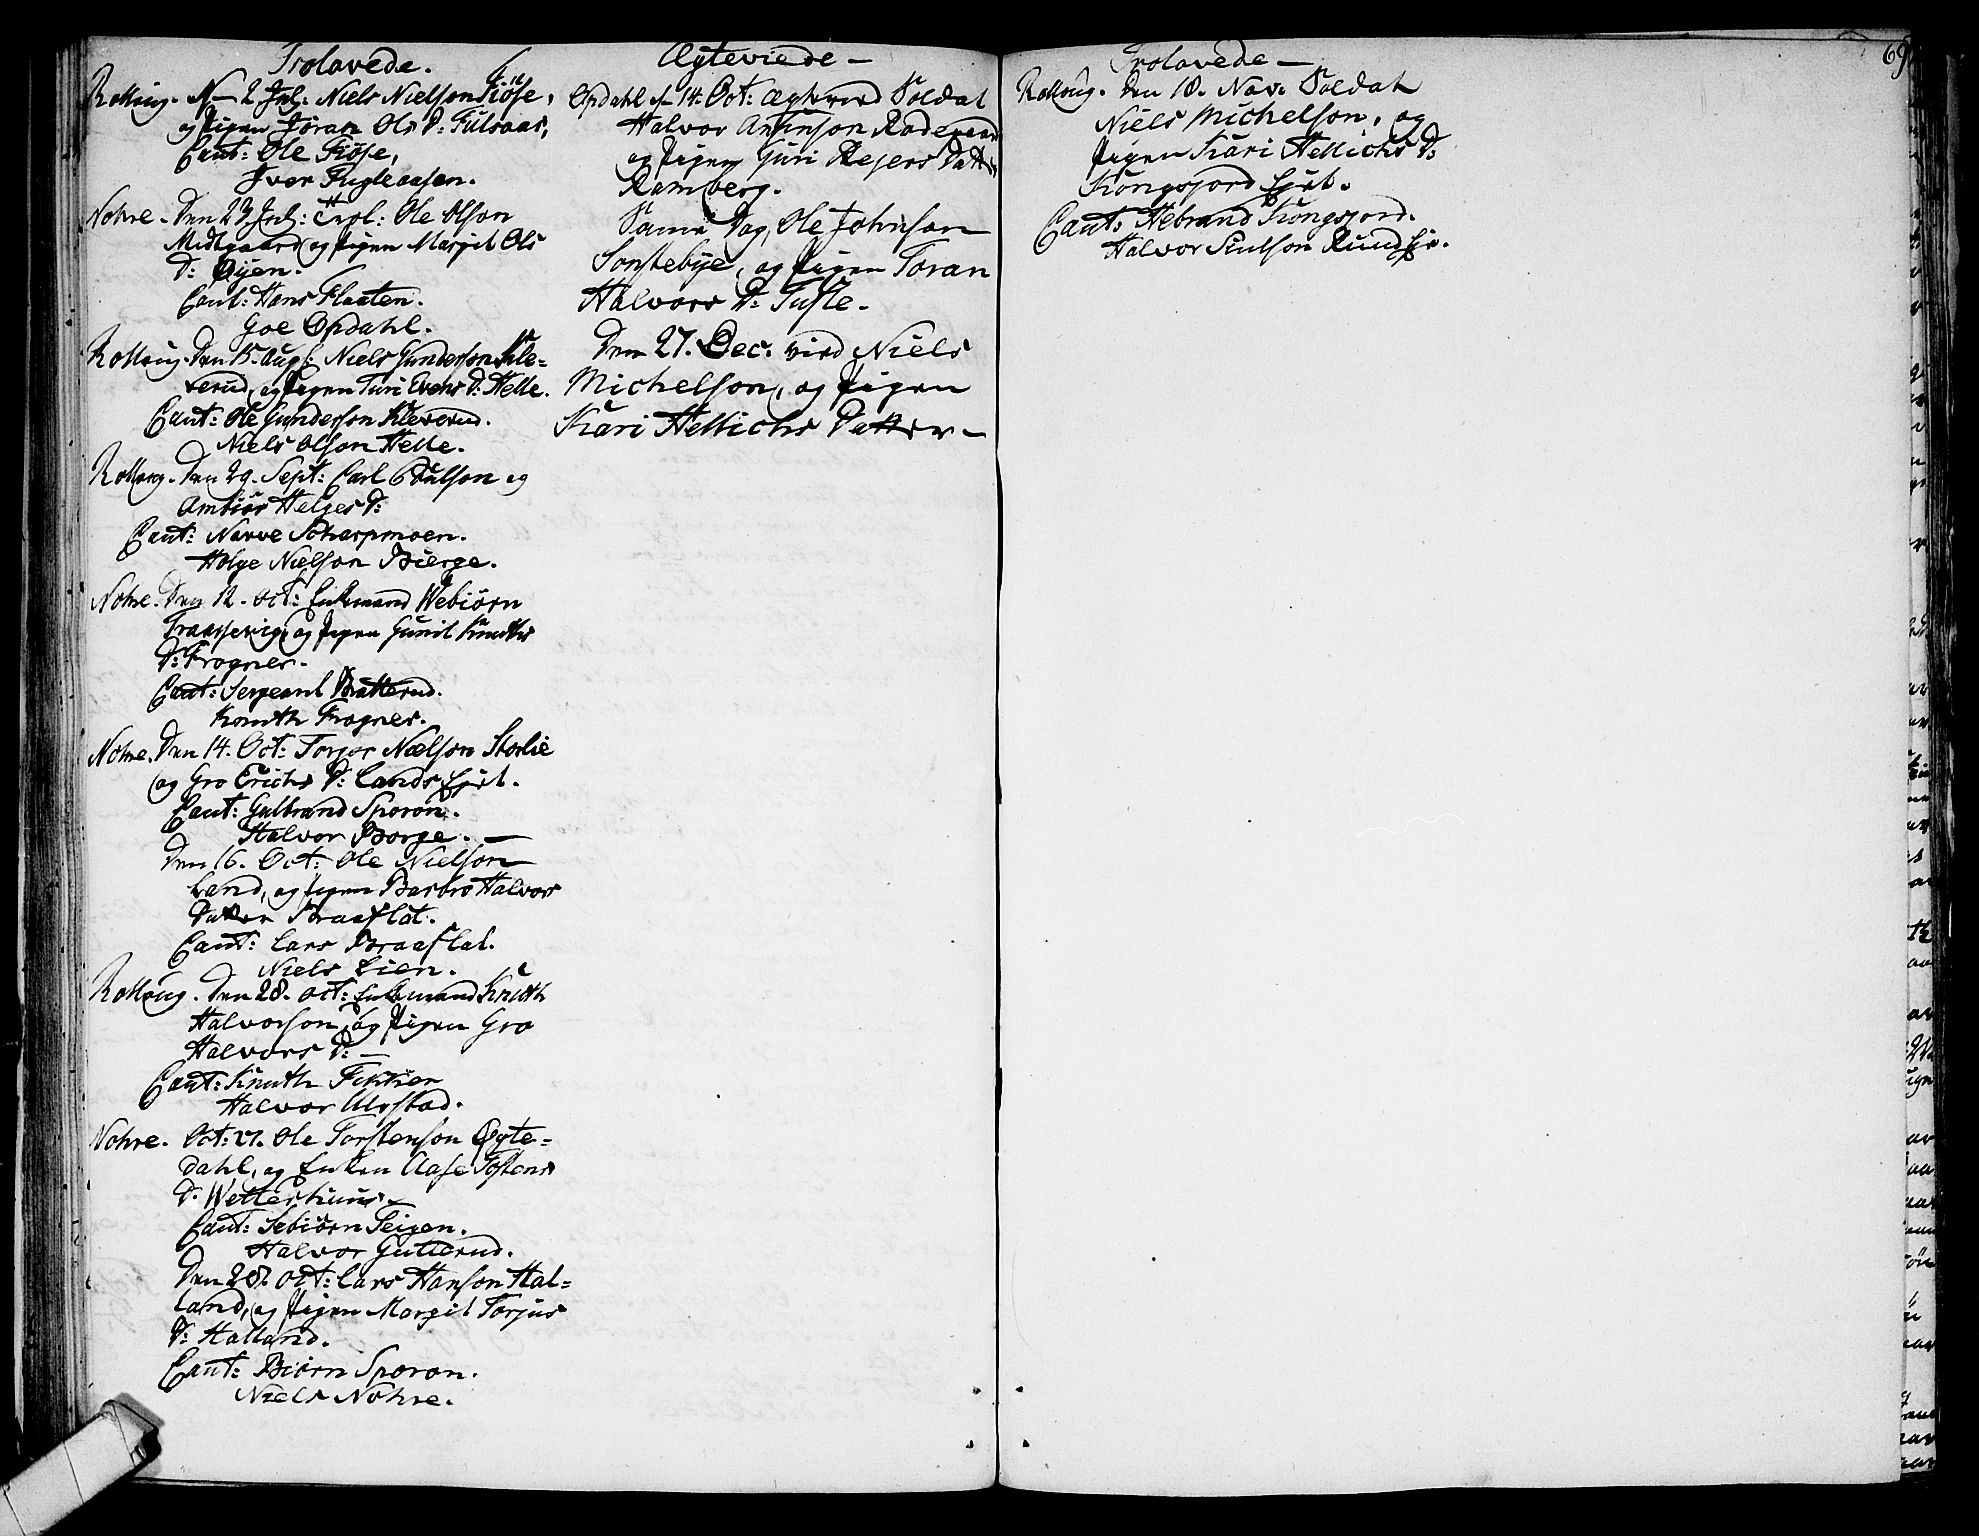 Trolovede.
Rolloug. d. 2 Jul: Niels Nielson Fiöse,
og Pigen Jöran Ols D: Fulsaas,
Caut: Ole Fiöse,
Iver Fugleaasen.
Nohre. Den 23 Jul: Trol: Ole Olson
Midtgaard og Pigen Margit Ols
D: Öyen.
Caut: Hans Flaaten.
Goe Opdahl.
Rolloug. Den 15. Aug: Niels Gunderson Kle=
verud, og Pigen Turi Evens D: Helle.
Caut: Ole Gunderson Kleverud.
Niels Olson Helle.
Rolloug. Den 29. Sept: Carl Poulson og
Ambiör Helges D:
Caut: Narve Scharpmoen.
Holge Nielson Bierge.
Nohre. Den 12. Oct: Enkemand Webiörn
og Pigen Gunil Knuths
D: Frogner.
Caut: Sergeant Bratterud.
Knuth Frogner.
Nohre. Den 14. Oct: Torger Nielson Storlie
og Gro Erichs D: Lands Ejet.
Caut: Gulbrand Sporon.
Halvor Borge.
Den 16. Oct: Ole Nielson
Land, og Pigen Barbro Halvors
Datter Braaflat.
Caut: Lars Braaflat.
Niels Lien.
Rolloug. Den 28. Oct: Enkemand Knuth
Halvorson, og Pigen Gro
Halvors D:
Caut: Knuth
Halvor Ulvstad.
Nohre. Oct: 27. Ole Torstenson Ögte=
dahl, og Enken Aase Tostens
D: Wetterhuus
Caut: Sebiörn Teigen.
Halvor Gutterud.
Den 28. Oct: Lars Hanson Hal=
land, og Pigen Margit Torjus
D: Halland.
Caut: Biörn Sporon.
Niels Nohre.
Ægteviede
Opdahl d. 14. Oct: Ægteviet Soldat
Halvor Anfinson Radegaard
og Pigen Guri Rejers Datter
Ramberg.
Samme Dag, Ole Johnson
Sonstebye, og Pigen Toran
Halvors D: Tufte.
Den 27. Dec. vied Niels
Michelson, og Pigen
Kari Hellichs Datter
Trolovede
Rolloug. Den 18. Nov. Soldat
Niels Michelson, og
Pigen Kari Hellichs D:
Kongsjord Ejet.
Caut: Hebrand Kongsjord.
Halvor Siulson Ruud Eje.
69